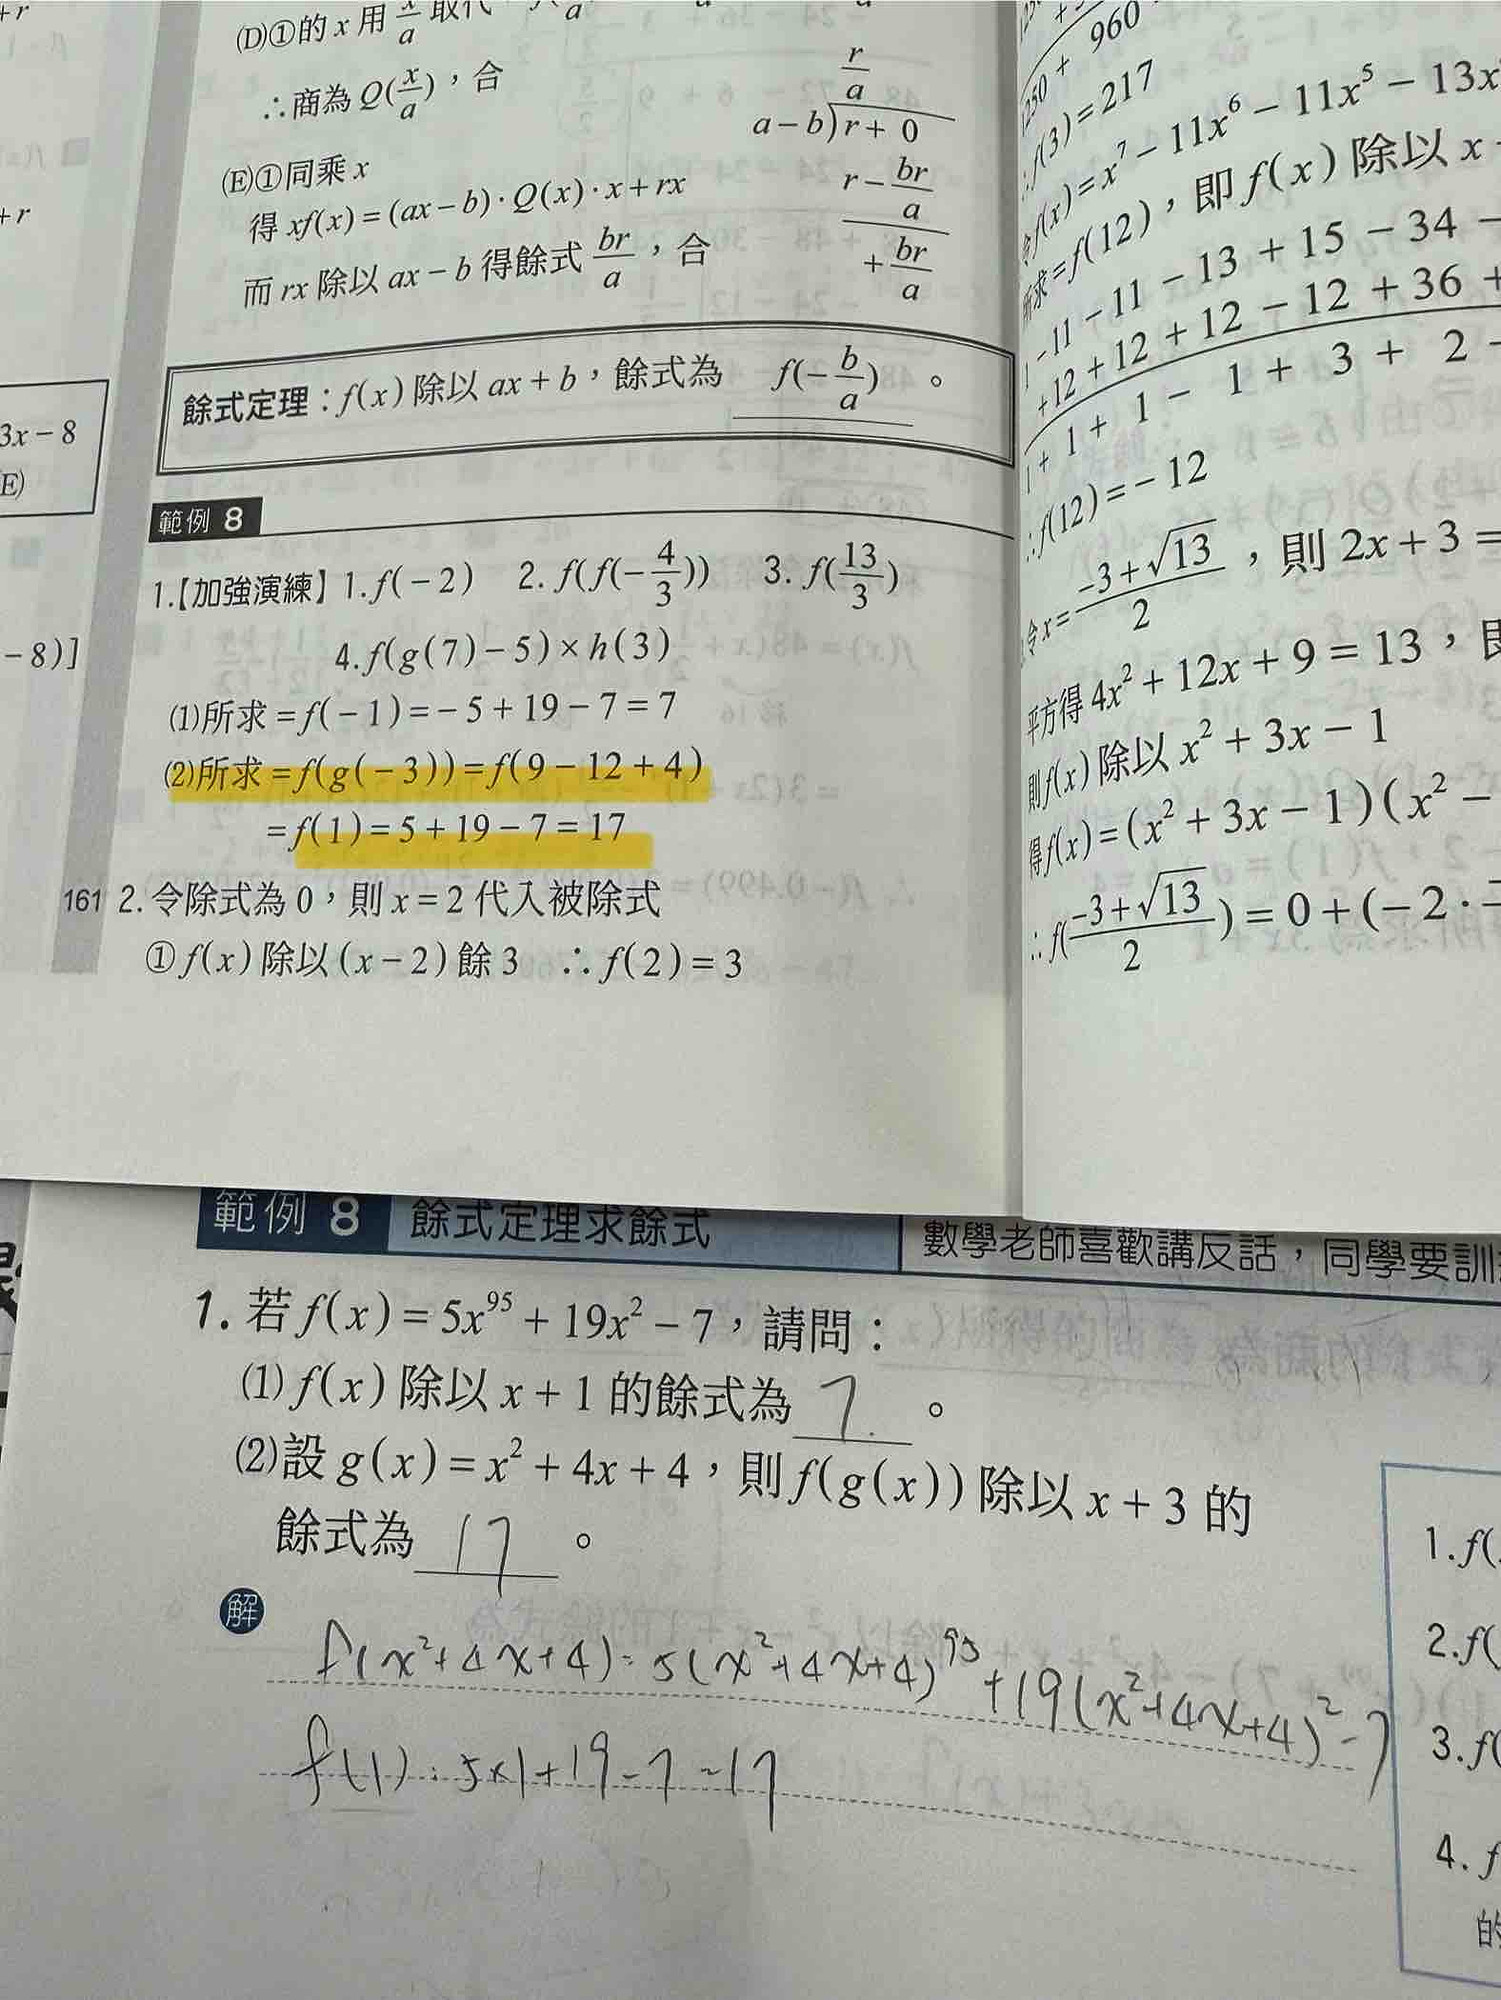 +r
(D)①的 x 用 x/a 取代
∴商為 Q(x/a)，合
(E)①同乘 x
得 xf(x) = (ax − b)·Q(x)·x + rx
而 rx 除以 ax − b 得餘式 br/a，合
r/a
a − b)r + 0
r − br/a
+ br/a
+r
3x − 8
E)
− 8)]
餘式定理：f(x) 除以 ax + b，餘式為 f(−b/a)。
範例 8
1.【加強演練】1. f(−2) 2. f(f(−4/3)) 3. f(13/3)
4. f(g(7) − 5) × h(3)
(1)所求 = f(−1) = −5 + 19 − 7 = 7
(2)所求 = f(g(−3)) = f(9 − 12 + 4)
= f(1) = 5 + 19 − 7 = 17
161
2. 令除式為 0，則 x = 2 代入被除式
① f(x) 除以 (x − 2) 餘 3 ∴ f(2) = 3
960
∴f(3) = 217
令f(x) = x⁷ − 11x⁶ − 11x⁵ − 13x
所求 = f(12)，即 f(x) 除以 x
1 − 11 − 11 − 13 + 15 − 34 −
+12 + 12 + 12 − 12 + 36 +
1 + 1 + 1 − 1 + 3 + 2 −
∴f(12) = −12
令 x = (−3 + √13)/2，則 2x + 3 =
平方得 4x² + 12x + 9 = 13，即
則f(x) 除以 x² + 3x − 1
得f(x) = (x² + 3x − 1)(x² −
∴f((−3 + √13)/2) = 0 + (−2·
範例 8 餘式定理求餘式 數學老師喜歡講反話，同學要訓
1. 若 f(x) = 5x⁹⁵ + 19x² − 7，請問：
(1) f(x) 除以 x + 1 的餘式為 7 。
(2)設 g(x) = x² + 4x + 4，則 f(g(x)) 除以 x + 3 的
餘式為 17 。
解
f(x²+4x+4) = 5(x²+4x+4)⁹⁵ + 19(x²+4x+4)² − 7
f(1) = 5×1+19−7=17
1. f(
2. f(
3. f(
4. f
的